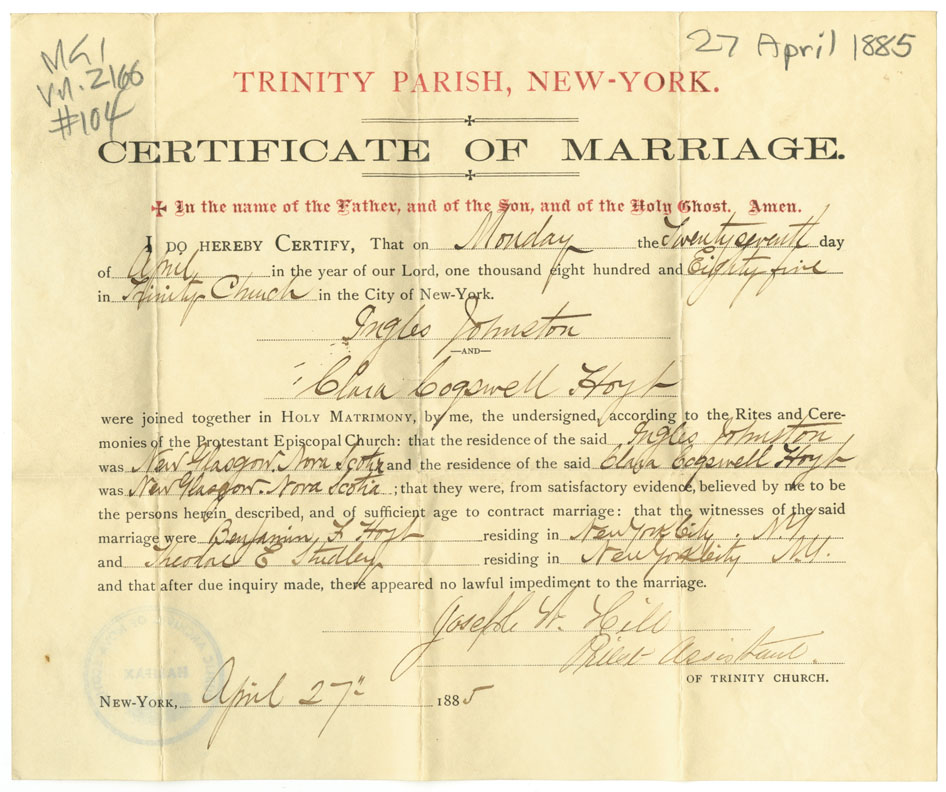 MG1
Vol. 2166
#104
27 April 1885
TRINITY PARISH, NEW-YORK.
CERTIFICATE OF MARRIAGE.
✠ In the name of the Father, and of the Son, and of the Holy Ghost. Amen.
I DO HEREBY CERTIFY, That on Monday the Twenty seventh day
of April in the year of our Lord, one thousand eight hundred and Eighty five
in Trinity Church in the City of New-York.
Ingles Johnston
—AND—
Clara Cogswell Hoyt
were joined together in HOLY MATRIMONY, by me, the undersigned, according to the Rites and Cere-
monies of the Protestant Episcopal Church: that the residence of the said Ingles Johnston
was New Glasgow. Nova Scotia and the residence of the said Clara Cogswell Hoyt
was New Glasgow. Nova Scotia ; that they were, from satisfactory evidence, believed by me to be
the persons herein described, and of sufficient age to contract marriage: that the witnesses of the said
marriage were Benjamin F. Hoyt residing in New York City. N.Y.
and Theodore E Studley residing in New York City N.Y.
and that after due inquiry made, there appeared no lawful impediment to the marriage.
Joseph W. Hill
Priest Assistant.
OF TRINITY CHURCH.
NEW-YORK, April 27" 1885
HALIFAX